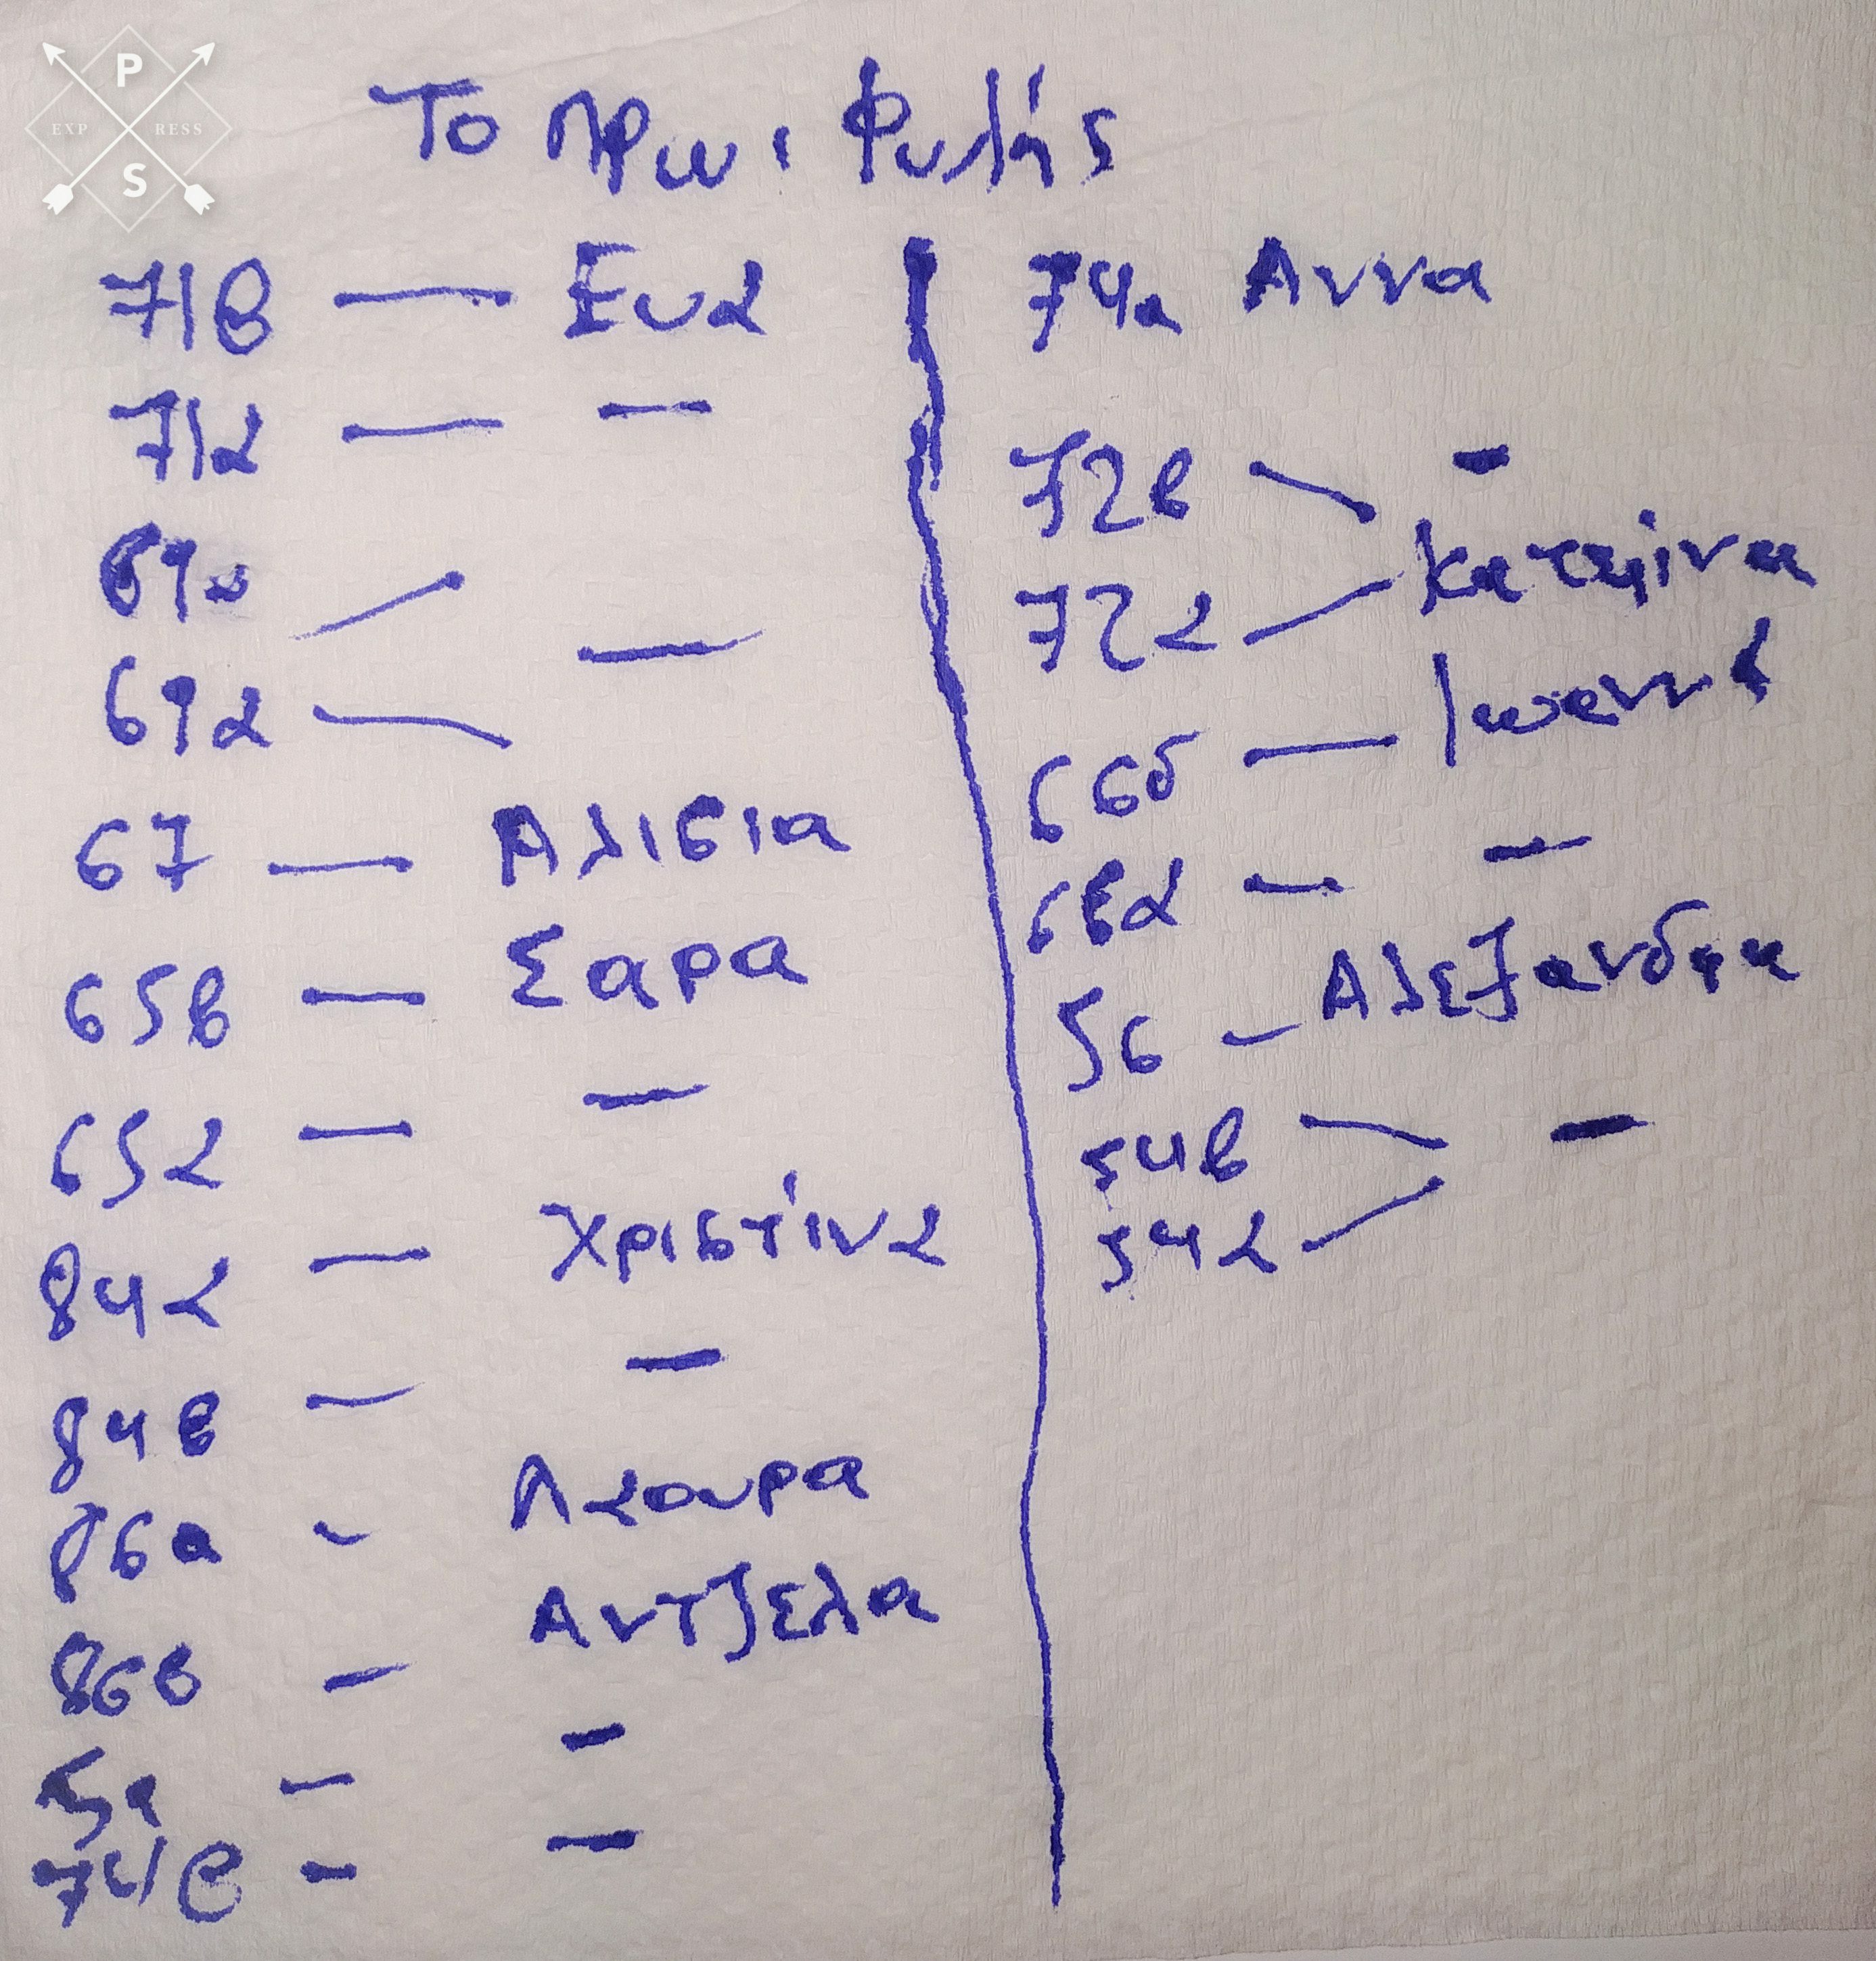 P
EXP RESS
S
Το πρωι Φυλής
71β — Ευα
71α — —
69α —
69α
67 — Αλισια
65β — Σαρα
65α — —
84α — Χριστίνα
84β — —
86α - Λαουρα
86β - Αντζελα
-
74β - -
74α Αννα
72β -
Κατερίνα
72α
66δ — Ιωαννα
66α - -
56 - Αλεξανδρα
54β -
54α